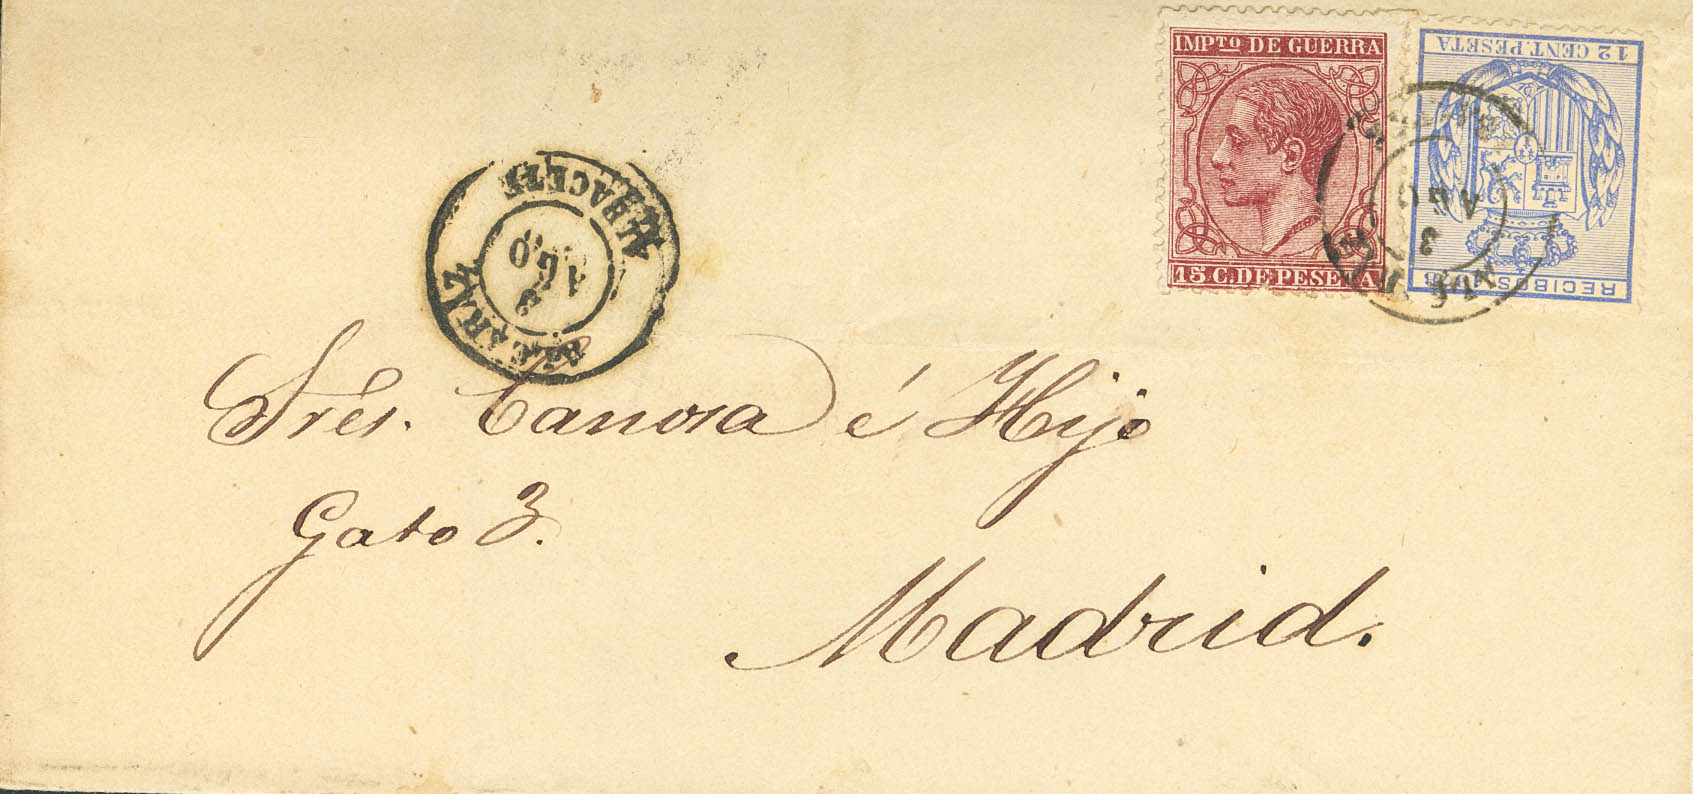 IMPTO DE GUERRA
15 C. DE PESETA
12 CENT. PESETA
RECIBOS
3
AGO
ALBACETE
3
AGO
ALCARAZ
Srés. Canosa é Hijo
Gato 3.
Madrid.